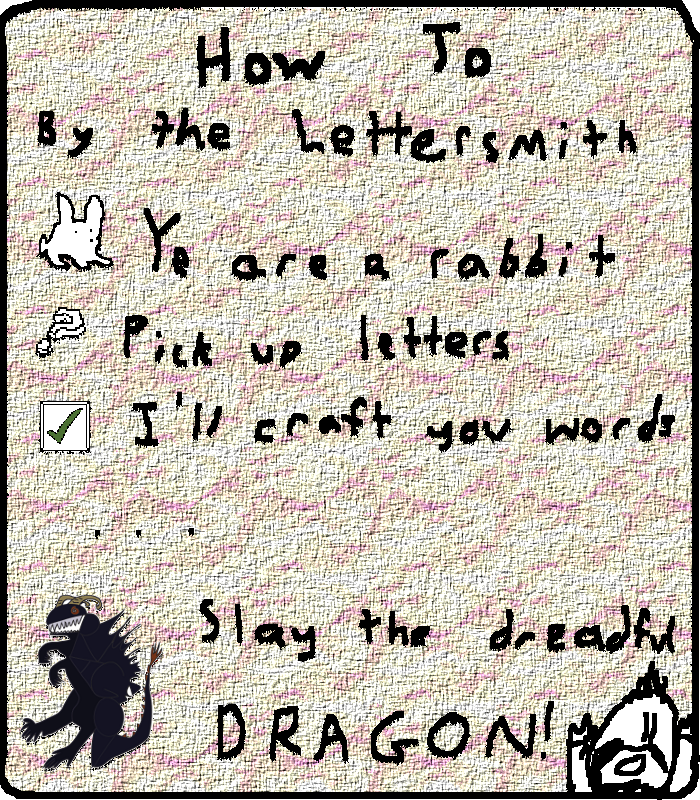 How To
By the Lettersmith
Ye are a rabbit
Pick up letters
I'll craft you words
. . .
Slay the dreadful
DRAGON!